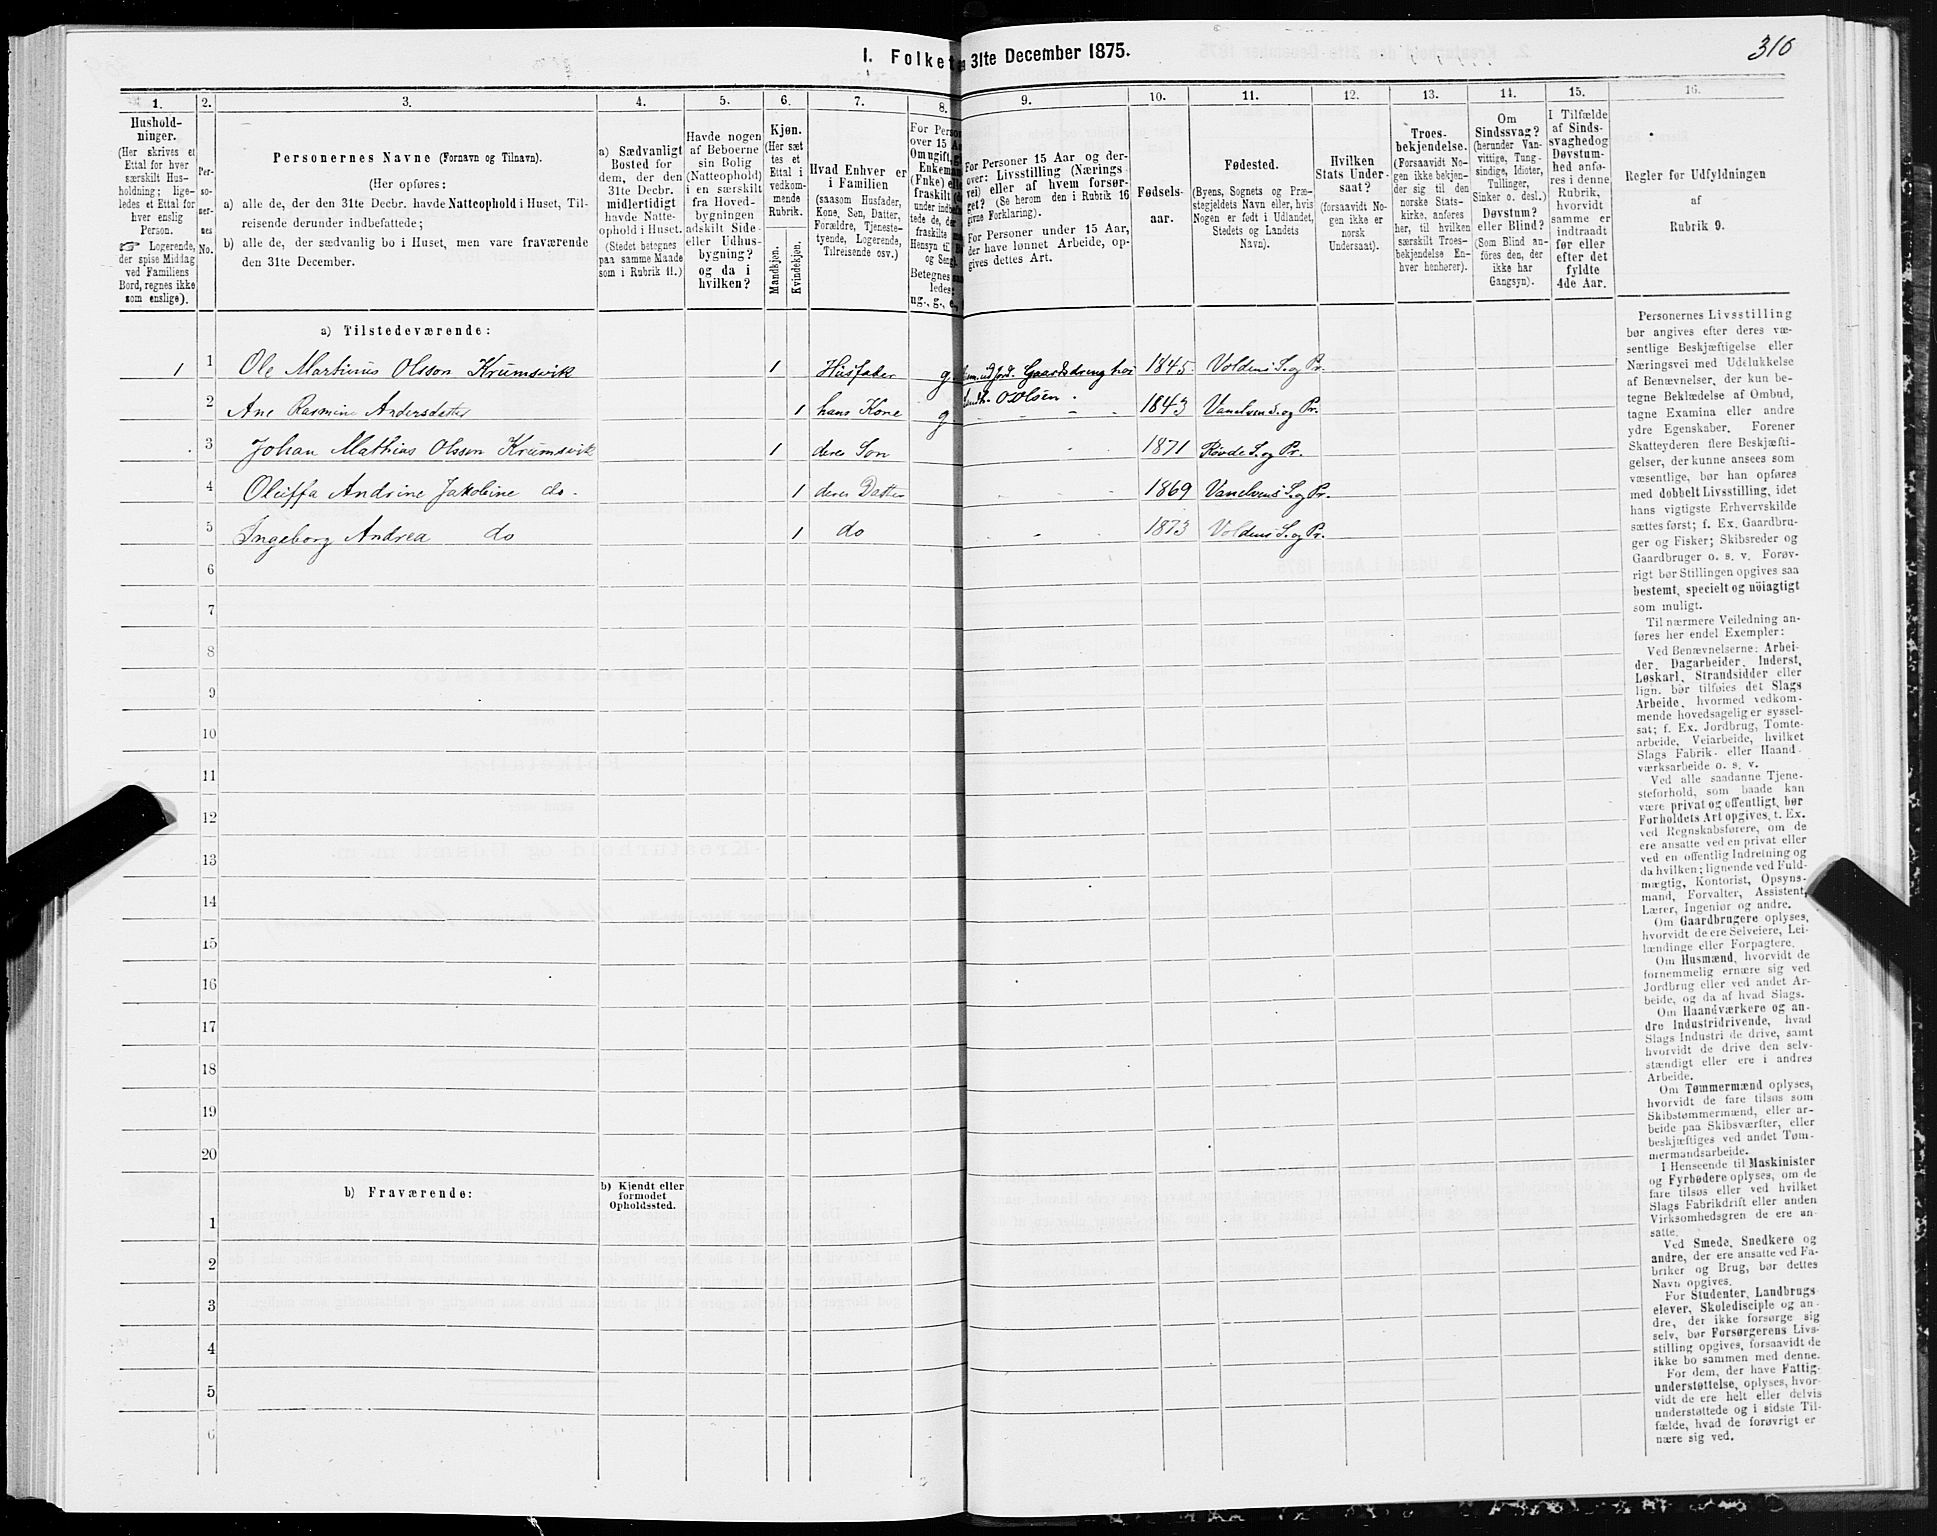 316
I. Folket 31te December 1875.
1. 2. 3. 4. 5. 6. 7. 8. 9. 10. 11. 12. 13. 14. 15. 16.
Hushold-
ninger.
(Her skrives et
Ettal for hver
særskilt Hus-
holdning; lige-
ledes et Ettal for
hver enslig
Person.
☞ Logerende,
der spise Middag
ved Familiens
Bord, regnes ikke
som enslige).
Per-
so-
ner-
nes
No.
Personernes Navne (Fornavn og Tilnavn).
(Her opføres:
a) alle de, der den 31te Decbr. havde Natteophold i Huset, Til-
reisende derunder indbefattede;
b) alle de, der sædvanlig bo i Huset, men vare fraværende
den 31te December.
a) Sædvanligt
Bosted for
dem, der den
31te Decbr.
midlertidigt
havde Natte-
ophold i Huset.
(Stedet betegnes
paa samme Maade
som i Rubrik 11.)
Havde nogen
af Beboerne
sin Bolig
(Natteophold)
i en særskilt
fra Hoved-
bygningen
adskilt Side-
eller Udhus-
bygning?
og da i
hvilken?
Kjøn.
(Her sæt
tes et
Ettal i
vedkom-
mende
Rubrik.
Mandkjøn.
Kvindekjøn.
Hvad Enhver er
i Familien
(saasom Husfader,
Kone, Søn, Datter,
Forældre, Tjeneste-
tyende, Logerende,
Tilreisende osv.)
For Perso
over 15 A
Om ugift, g
Enkema
(Enke) ell
fraskilt
under indbe
tede de, der
fraskilte
Hensyn til B
og Seng).
Betegnes
ledes:
ug., g., e.,
For Personer 15 Aar og der-
over: Livsstilling (Nærings-
vei) eller af hvem forsør-
get? (Se herom den i Rubrik 16
givne Forklaring).
For Personer under 15 Aar,
der have lønnet Arbeide, op-
gives dettes Art.
Fødsels-
aar.
Fødested.
(Byens, Sognets og Præ-
stegjeldets Navn eller, hvis
Nogen er født i Udlandet,
Stedets og Landets
Navn).
Hvilken
Stats Under-
saat?
(forsaavidt No-
gen ikke er
norsk
Undersaat).
Troes-
bekjendelse.
(Forsaavidt No-
gen ikke bekjen-
der sig til den
norske Stats-
kirke, anføres
her, til hvilken
særskilt Troes-
bekjendelse En-
hver henhører).
Om
Sindssvag?
(herunder Van-
vittige, Tung-
sindige, Idioter,
Tullinger,
Sinker o. desl.)
Døvstum?
eller Blind?
(Som Blind an-
føres den, der
ikke har
Gangsyn).
I Tilfælde
af Sinds-
svaghed og
Døvstum-
hed anfø-
res i denne
Rubrik,
hvorvidt
samme er
indtraadt
før eller
efter det
fyldte
4de Aar.
Regler før Udfyldningen
af
Rubrik 9.
a) Tilstedeværende:
1 1 Ole Martinus Olsson Krumsvik 1 Husfader g. Gaardsdreng hos 1845 Voldens S. og Pr.
2 Ane Rasmine Andersdatter 1 hans Kone g O Olsen. 1843 Vanelvens S. og Pr.
3 Johan Mathias Olsson Krumsvik 1 deres Søn 1871 Røvde S. og Pr.
4 Oluffa Andrine Jakobine do. 1 deres Datter 1869 Vanelvens S. og Pr.
5 Ingeborg Andrea do 1 do 1873 Voldens S. og Pr.
6
7
8
9
10
11
12
13
14
15
16
17
18
19
20
b) Fraværende:
b) Kjendt eller
formodet
Opholdssted.
1
2
3
4
5
6
Personernes Livsstilling
bør angives efter deres væ-
sentlige Beskjæftigelse eller
Næringsvei med Udelukkelse
af Benævnelser, der kun be-
tegne Beklædelse af Ombud,
tagne Examina eller andre
ydre Egenskaber. Forener
Skatteyderen flere Beskjæfti-
gelser, der kunne ansees som
væsentlige, bør han opføres
med dobbelt Livsstilling, idet
hans vigtigste Erhvervskilde
sættes først; f. Ex. Gaardbru-
ger og Fisker; Skibsreder og
Gaardbruger o. s. v. Forøv-
rigt bør Stillingen opgives saa
bestemt, specielt og nöiagtigt
som muligt.
Til nærmere Veiledning an-
føres her endel Exempler:
Ved Benævnelserne: Arbei-
der, Dagarbeider, Inderst,
Løskarl, Strandsidder eller
lign. bør tilføies det Slags
Arbeide, hvormed vedkom-
mende hovedsagelig er syssel-
sat; f. Ex. Jordbrug, Tomte-
arbeide, Veiarbeide, hvilket
Slags Fabrik- eller Haand-
værksarbeide o. s. v.
Ved alle saadanne Tjene-
steforhold, som baade kan
være privat og offentligt, bør
Forholdets Art opgives, t. Ex.
ved Regnskabsførere, om de
ere ansatte ved en privat eller
ved en offentlig Indretning og
da hvilken; lignende ved Fuld-
mægtig, Kontorist, Opsyns-
mand, Forvalter, Assistent,
Lærer, Ingeniør og andre.
Om Gaardbrugere oplyses,
hvorvidt de ere Selveiere, Lei-
lændinge eller Forpagtere.
Om Husmænd, hvorvidt de
fornemmelig ernære sig ved
Jordbrug eller ved andet Ar-
beide, og da af hvad Slags.
Om Haandværkere og an-
dre Industridrivende, hvad
Slags Industri de drive, samt
hvorvidt de drive den selv-
stændigt eller ere i andres
Arbeide.
Om Tømmermænd oplyses,
hvorvidt de fare tilsøs som
Skibstømmermænd, eller ar-
beide paa Skibsværfter, eller
beskjæftiges ved andet Tøm-
mermandsarbeide.
I Henseende til Maskinister
og Fyrbødere oplyses, om de
fare tilsøs eller ved hvilket
Slags Fabrikdrift eller anden
Virksomhedsgren de ere an-
satte.
Ved Smede, Snedkere og
andre, der ere ansatte ved Fa-
briker og Brug, bør dettes
Navn opgives.
For Studenter, Landbrugs-
elever, Skoledisciple og an-
dre, der ikke forsørge sig
selv, bør Forsørgerens Livs-
stilling opgives, forsaavidt de
ikke bo sammen med denne.
For dem, der have Fattig-
understøttelse, oplyses, hvor-
vidt de ere helt eller delvis
understøttede og i sidste Til-
fælde, hvad de forøvrigt er
nære sig ved.